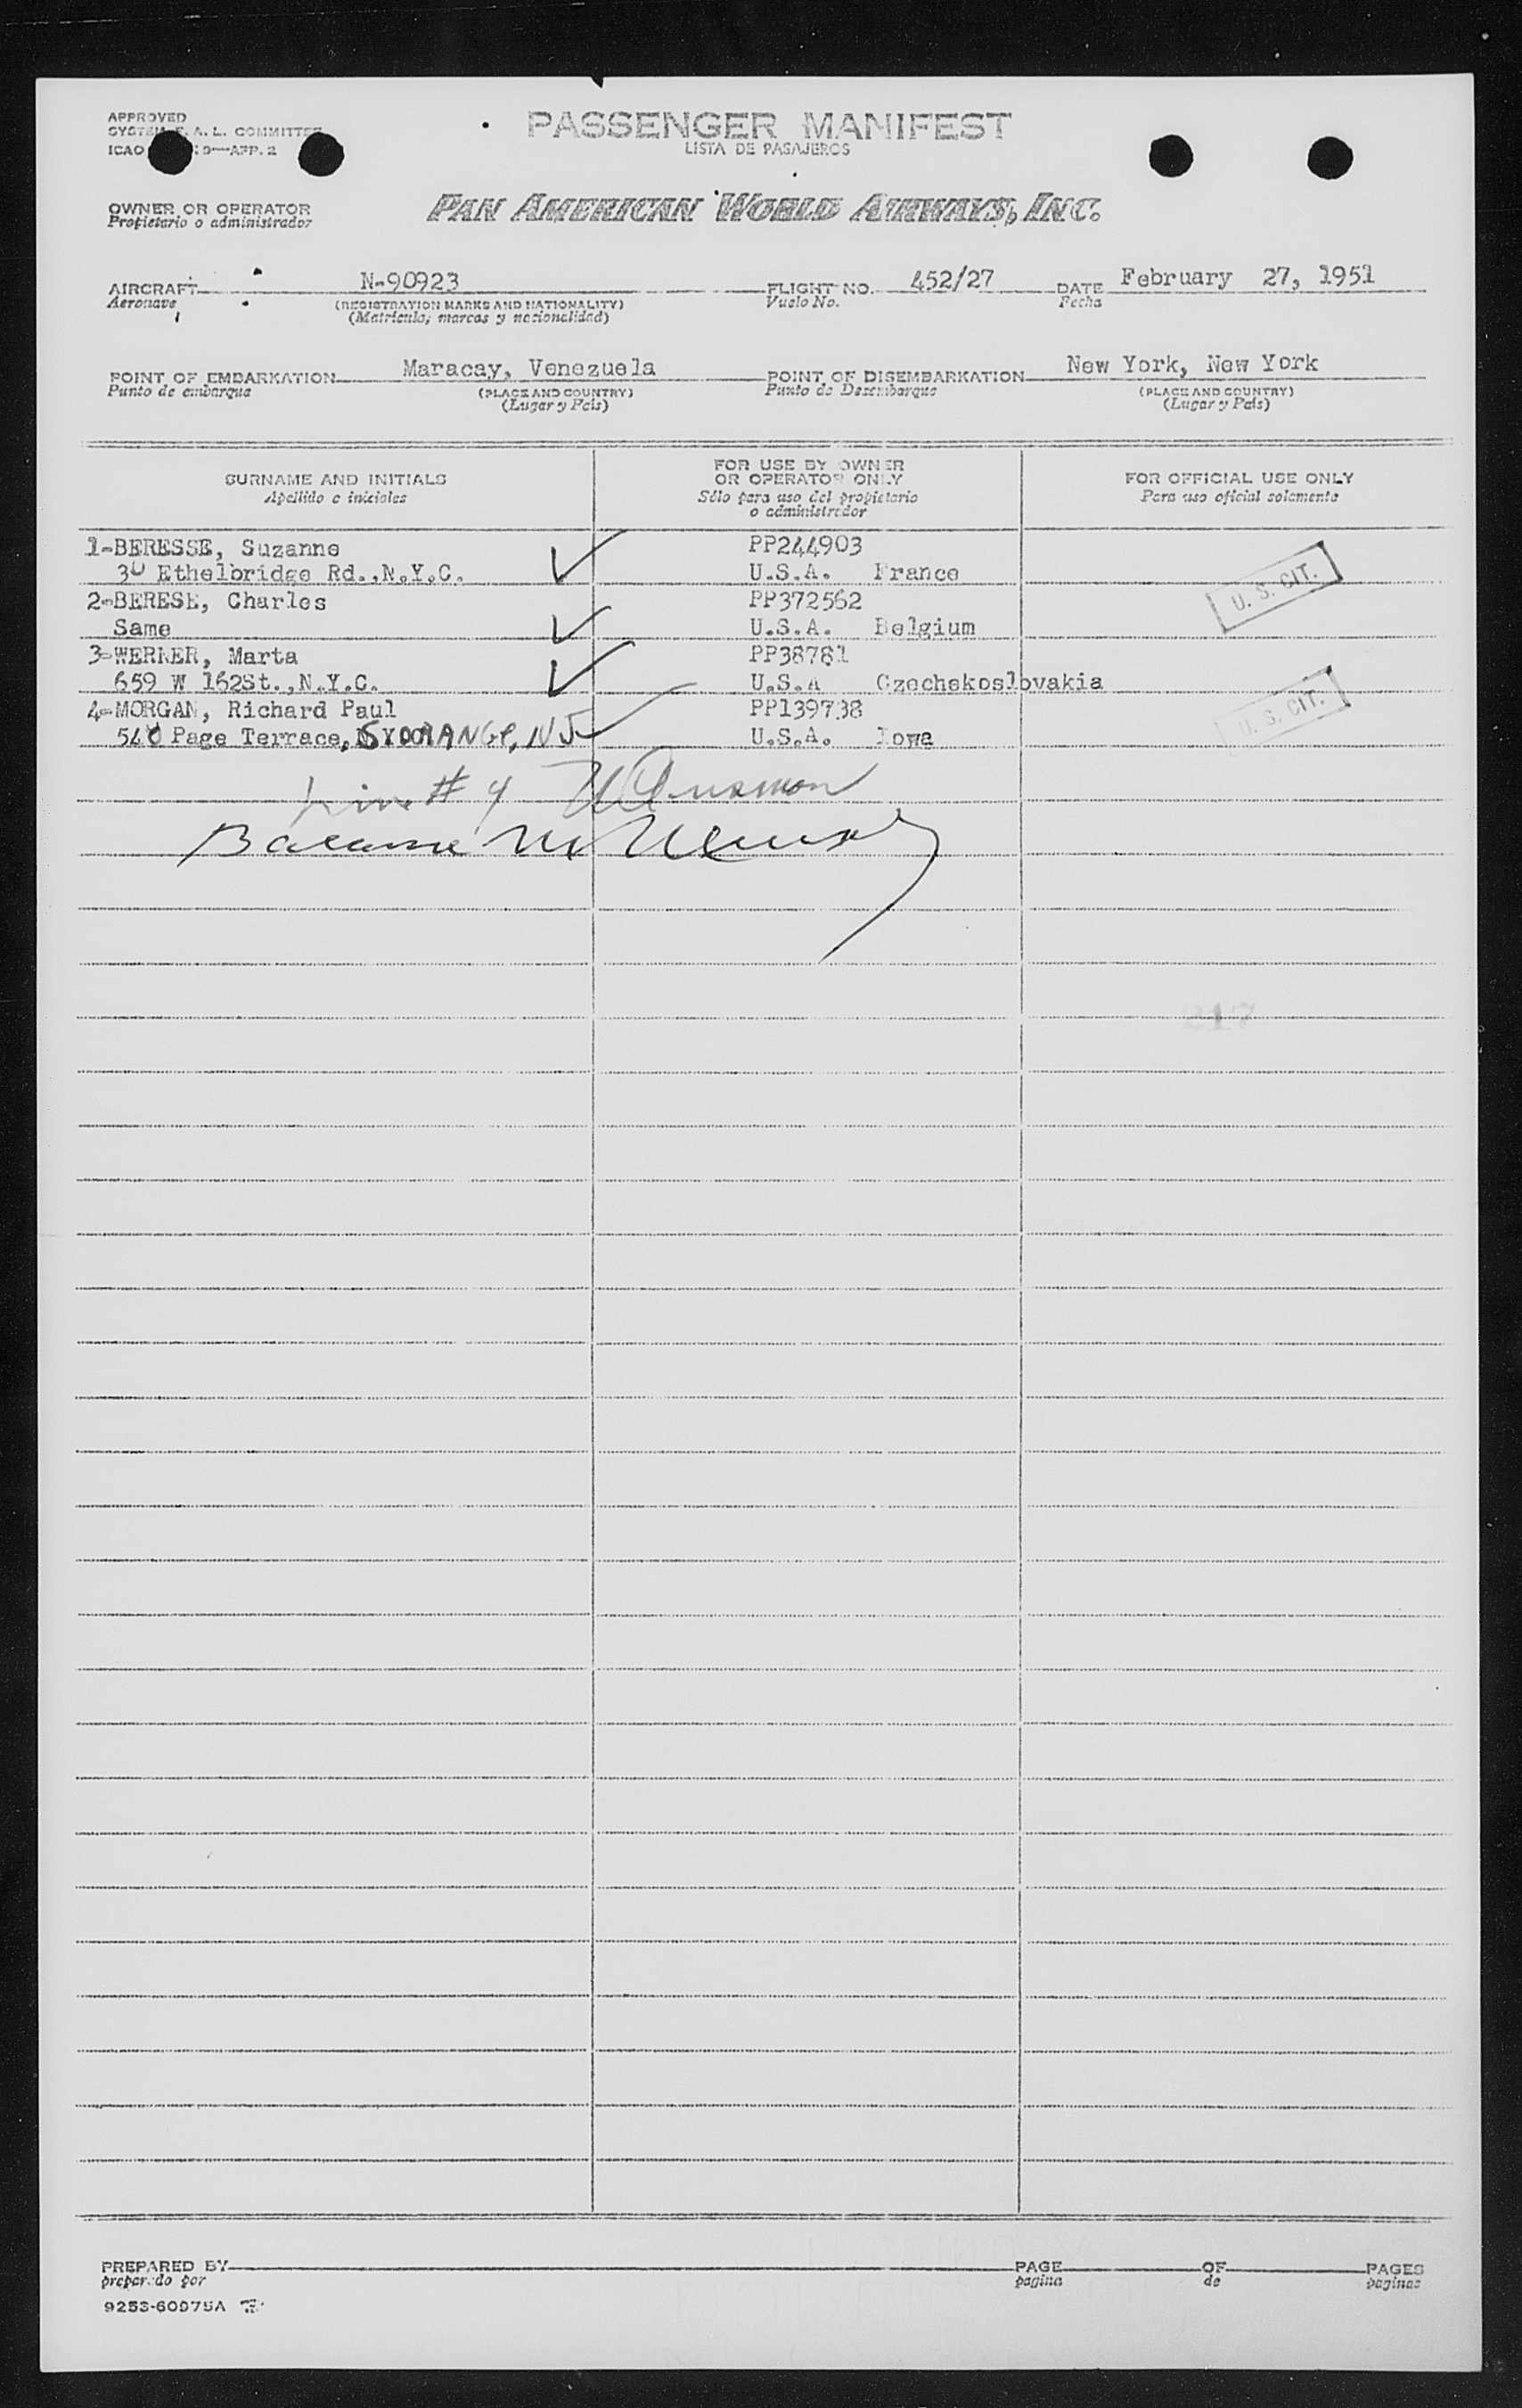 APPROVED
SYSTEM F. A. L. COMMITTEE
ICAO 9—APP. 2
PASSENGER MANIFEST
LISTA DE PASAJEROS
OWNER OR OPERATOR
Propietario o administrador
PAN AMERICAN WORLD AIRWAYS, INC.
AIRCRAFT N-90923 FLIGHT NO. 452/27 DATE February 27, 1951
Aeronave (REGISTRATION MARKS AND NATIONALITY) Vuelo No. Fecha
(Matricula, marcas y nacionalidad)
POINT OF EMBARKATION Maracay, Venezuela POINT OF DISEMBARKATION New York, New York
Punto de embarque (PLACE AND COUNTRY) Punto de Desembarque (PLACE AND COUNTRY)
(Lugar y País) (Lugar y País)
SURNAME AND INITIALS
Apellido e iniciales
FOR USE BY OWNER
OR OPERATOR ONLY
Sólo para uso del propietario
o administrador
FOR OFFICIAL USE ONLY
Para uso oficial solamente
1-BERESSE, Suzanne PP244903
30 Ethelbridge Rd.,N.Y.C. U.S.A. France U. S. CIT.
2-BERESE, Charles PP372562
Same U.S.A. Belgium
3-WERNER, Marta PP38781
659 W 162St.,N.Y.C. U.S.A Czechekoslovakia
4-MORGAN, Richard Paul PP139738 U. S. CIT.
540 Page Terrace, SYOORANGE, NJ U.S.A. Iowa
Line # 4
217
PREPARED BY PAGE OF PAGES
preparado por pagina de paginas
9253-60975A